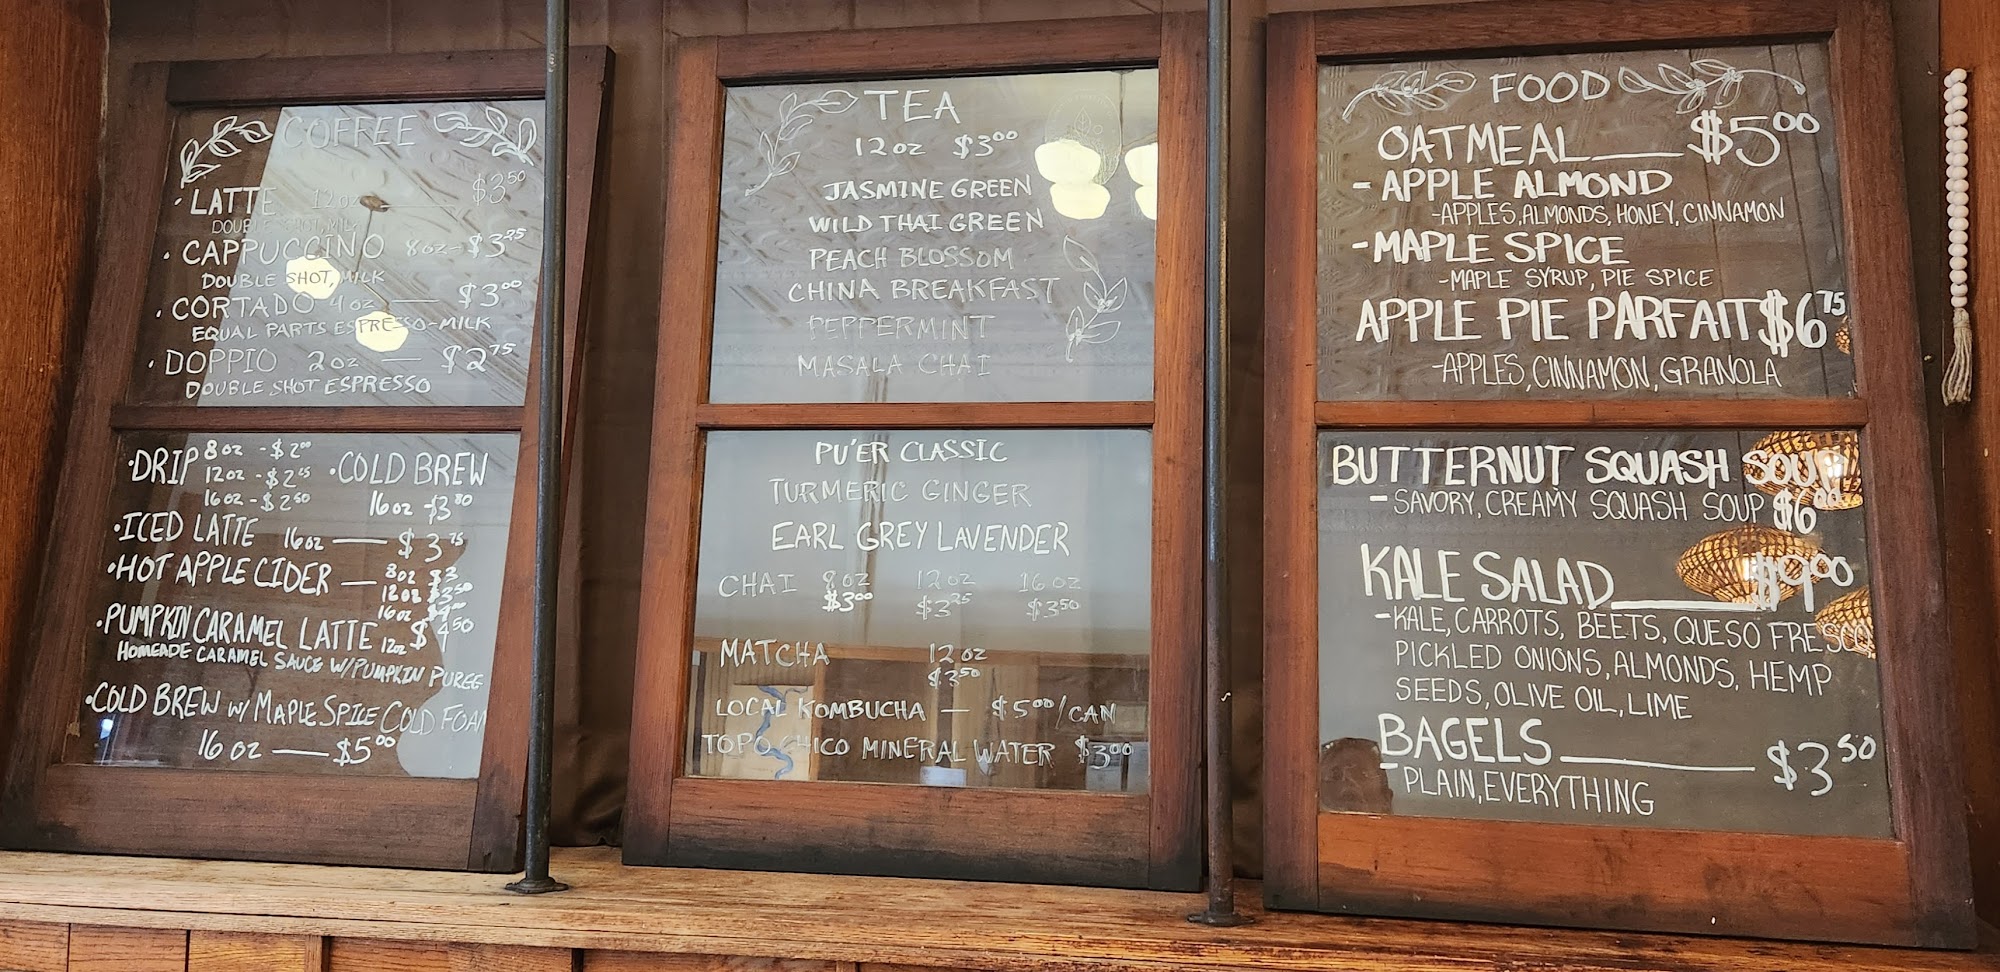 COFFEE
· LATTE 12oz $3.50
DOUBLE SHOT, MILK
· CAPPUCCINO 8oz - $3.25
DOUBLE SHOT, MILK
· CORTADO 4oz — $3.00
EQUAL PARTS ESPRESSO-MILK
· DOPPIO 2oz — $2.75
DOUBLE SHOT ESPRESSO
· DRIP 8oz - $2.00
12oz - $2.25
16oz - $2.50
· COLD BREW
16oz - $3.80
· ICED LATTE 16oz — $3.75
· HOT APPLE CIDER — 8oz $3
12oz $3.50
16oz
· PUMPKIN CARAMEL LATTE 12oz $4.50
HOMEADE CARAMEL SAUCE W/PUMPKIN PUREE
· COLD BREW W/ MAPLE SPICE COLD FOAM
16oz — $5.00
TEA
12oz $3.00
JASMINE GREEN
WILD THAI GREEN
PEACH BLOSSOM
CHINA BREAKFAST
PEPPERMINT
MASALA CHAI
PU'ER CLASSIC
TURMERIC GINGER
EARL GREY LAVENDER
CHAI 8oz 12oz 16oz
$3.00 $3.25 $3.50
MATCHA 12oz
$3.50
LOCAL KOMBUCHA — $5.00/CAN
TOPO CHICO MINERAL WATER $3.00
FOOD
OATMEAL — $5.00
- APPLE ALMOND
- APPLES, ALMONDS, HONEY, CINNAMON
- MAPLE SPICE
- MAPLE SYRUP, PIE SPICE
APPLE PIE PARFAIT $6.75
- APPLES, CINNAMON, GRANOLA
BUTTERNUT SQUASH SOUP
- SAVORY, CREAMY SQUASH SOUP $6.00
KALE SALAD — $9.00
- KALE, CARROTS, BEETS, QUESO FRESCO
PICKLED ONIONS, ALMONDS, HEMP
SEEDS, OLIVE OIL, LIME
BAGELS — $3.50
- PLAIN, EVERYTHING